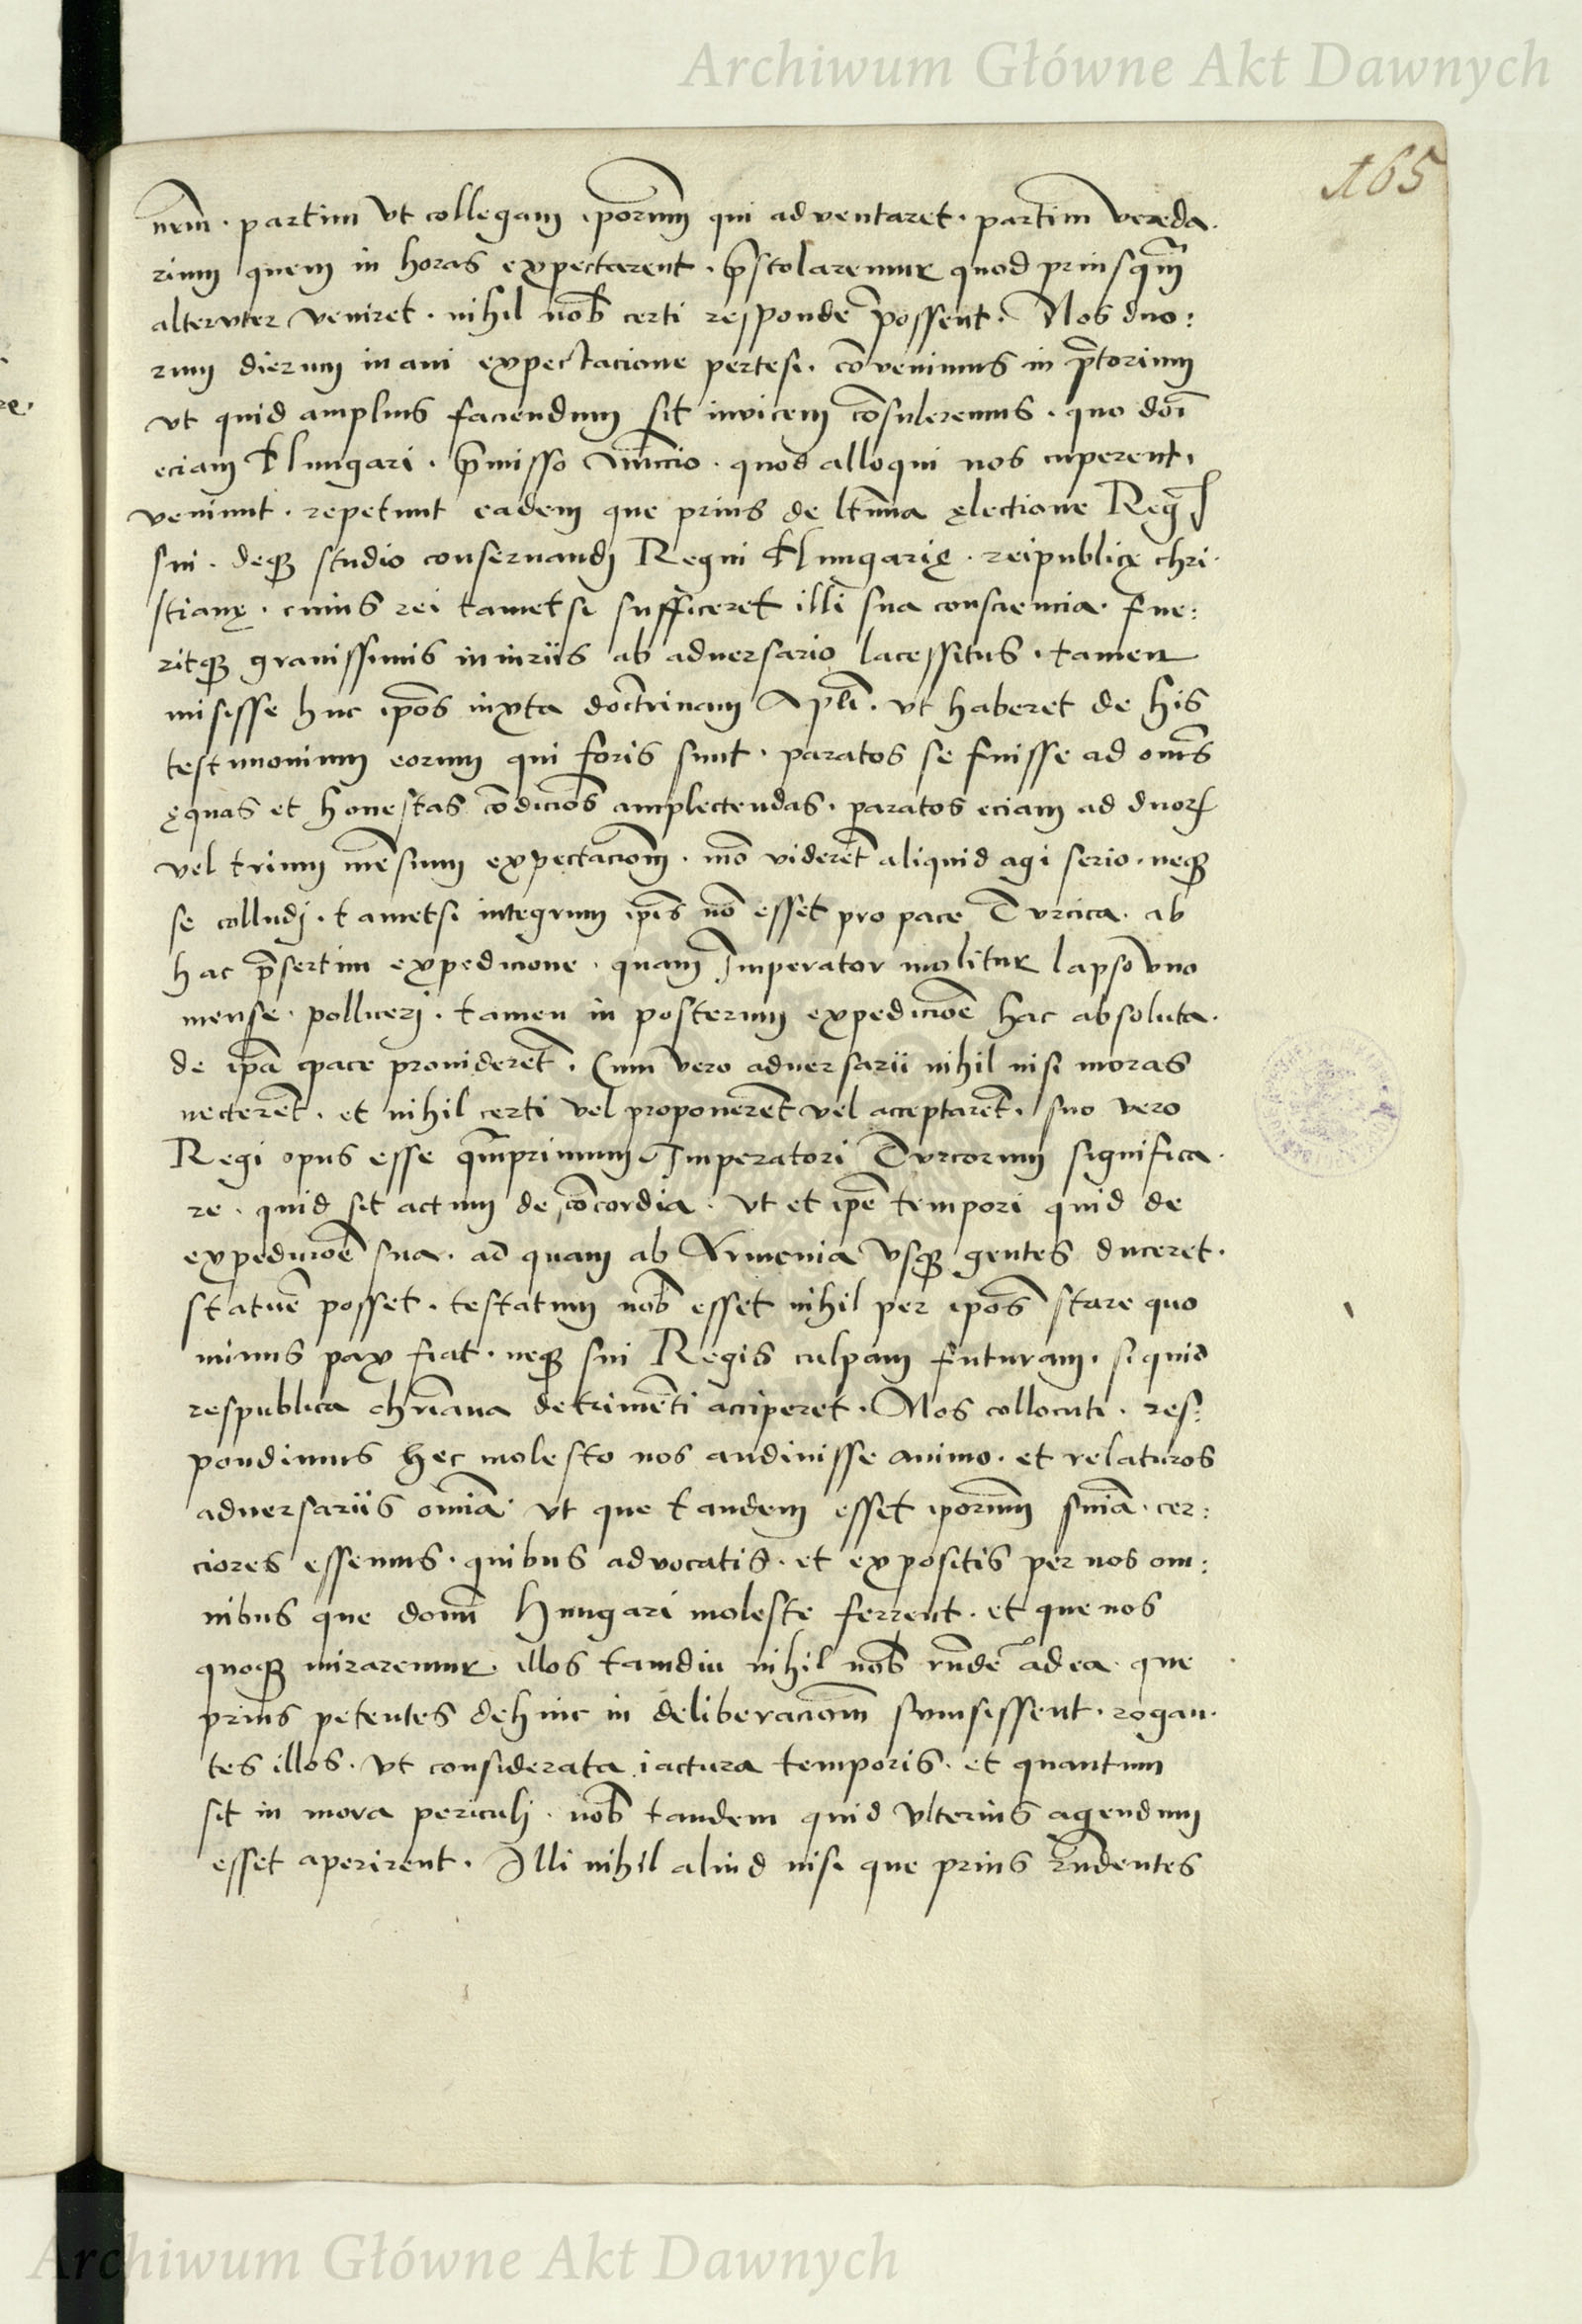 Archiwum Główne Akt Dawnych
165
nem̄ · partim vt collegam ip̄orum qui adventaret · partim vereda·
rium quem in horas expectarent · p̄stolaremur quod priusq̄m
alteruter veniret · nihil nob̄ certi respondē possent · Nos duo:
rum dierum inani expectacione pertesi · cōvenimus in p̄torium
vt quid amplius faciendum sit invicem cōsuleremus · quo do͞i
eciam Hungari · p̄misso nūncio · quod alloqui nos cuperent,
veniunt · repetunt eadem que prius de lt̄ima ęlectione Reḡ
sui · deqꝫ studio conseruandj Regni Hungarię · reipublicę chri·
stianę · cuius rei tametsi sufficeret illi sua consciencia · fue:
ritqꝫ grauissimis iniuriis ab aduersario lacessitus · tamen
misisse huc ip̄os iuxta doctrinam Ap̄li · vt haberet de his
testimonium eorum qui foris sunt · paratos se fuisse ad om̄s
ęquas et honestas cōdicio͞s amplectendas · paratos eciam ad duoꝝ
vel trium mēsium expectacio͞m · mo͞ viderēt aliquid agi serio · neqꝫ
se colludj · tametsi integrum ip̄is no͞ esset pro pace Turcica · ab
hac p̄sertim expedicione · quam Imperator molitur lapso vno
mense · pollicerj · tamen in posterum expedicio͞e hac absoluta ·
de ip̄a pace prouiderēt · Cum vero aduersarii nihil nisi moras
necterēt · et nihil certi vel proponerēt vel acceptarēt · suo vero
Regi opus esse q̄mprimum Imperatori Turcorum significa·
re · quid sit actum de cōcordia · vt et ip̄e tempori quid de
expedicio͞e sua · ad quam ab Armenia vsqꝫ gentes duceret ·
statuē posset · testatum nob̄ esset nihil per ip̄os stare quo
minus pax fiat · neqꝫ sui Regis culpam futuram · si quid
respublica chr̄iana detrimēti acciperet · Nos collocuti · res:
pondimus hec molesto nos audiuisse animo · et relaturos
aduersariis om̄ia · vt que tandem esset ip̄orum sn̄ia · cer:
ciores essemus · quibus advocatis · et expositis per nos om:
nibus que domi͞ Hungari moleste ferrent · et que nos
quoqꝫ miraremur · illos tamdiu nihil nob̄ rn̄dē ad ea · que
prius petentes dehinc in deliberacio͞m sumsissent · rogan·
tes illos · vt considerata iactura temporis · et quantum
sit in mora periculi · nob̄ tandem quid vlterius agendum
esset aperirent · Illi nihil aliud nisi que prius rn̄dentes
Archiwum Główne Akt Dawnych